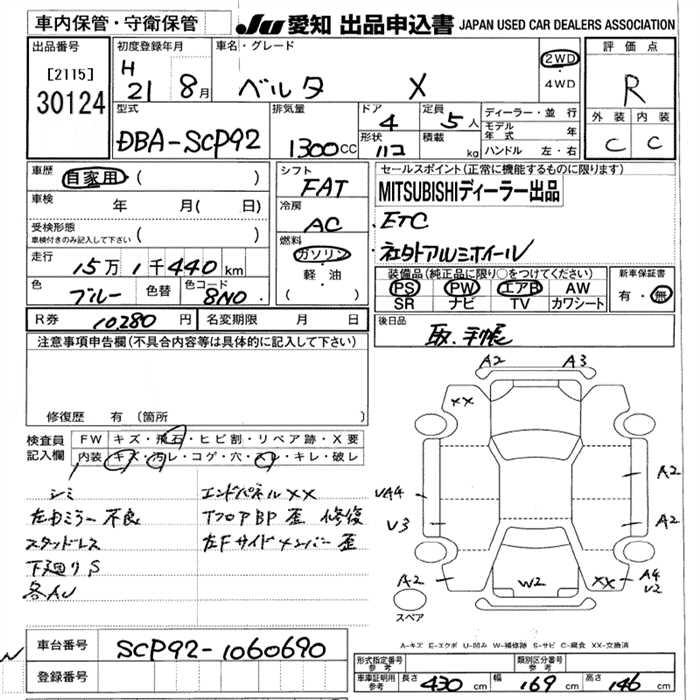 車内保管・守衛保管
JU 愛知 出品申込書 JAPAN USED CAR DEALERS ASSOCIATION
出品番号
[2115]
30124
初度登録年月
H
21 8月
車名・グレード
ベルタ X
2WD
・
4WD
評価点
R
外装 内装
C C
型式
DBA-SCP92
排気量
1300cc
ドア
4
形状
ハコ
定員
5人
積載
kg
ディーラー・並行
モデル年式 年
ハンドル 左・右
車歴
自家用 ( )
車検
年 月( 日)
受検形態
車検付きのみ記入して下さい ( )
走行
15万1千440km
色
ブルー
色替
色コード
8N0
シフト
FAT
冷房
AC
燃料
ガソリン
・
軽・油
( )
セールスポイント(正常に機能するものに限ります)
MITSUBISHIディーラー出品
・ETC
・社外アルミホイール
装備品(純正品に限り○をつけてください)
PS PW エアB AW
SR ナビ TV カワシート
新車保証書
有・無
R券 10,280円
名変期限 月 日
後日品
取.手帳
注意事項申告欄(不具合内容等は具体的に記入して下さい)
修復歴 有(箇所
検査員
記入欄
FW キズ・飛石・ヒビ割・リペア跡・X要
内装 キズ・汚レ・コゲ・穴・スレ・キレ・破レ
シミ
左右ミラー不良
スタッドレス
下廻りS
各AU
エンドパネルXX
TフロアBP歪 修復
左Fサイドメンバー歪
A2 A3
XX
A2
VA4
V3
A2
A2
W2
XX
A4
V2
スペア
A-キズ E-エクボ U-凹み W-補修跡 S-サビ C-腐食 XX-交換済
車台番号
SCP92-1060690
登録番号
形式指定番号
参考
類別区分番号
参考
車庫証明用
参考
長さ 430 cm
幅 169 cm
高さ 146 cm